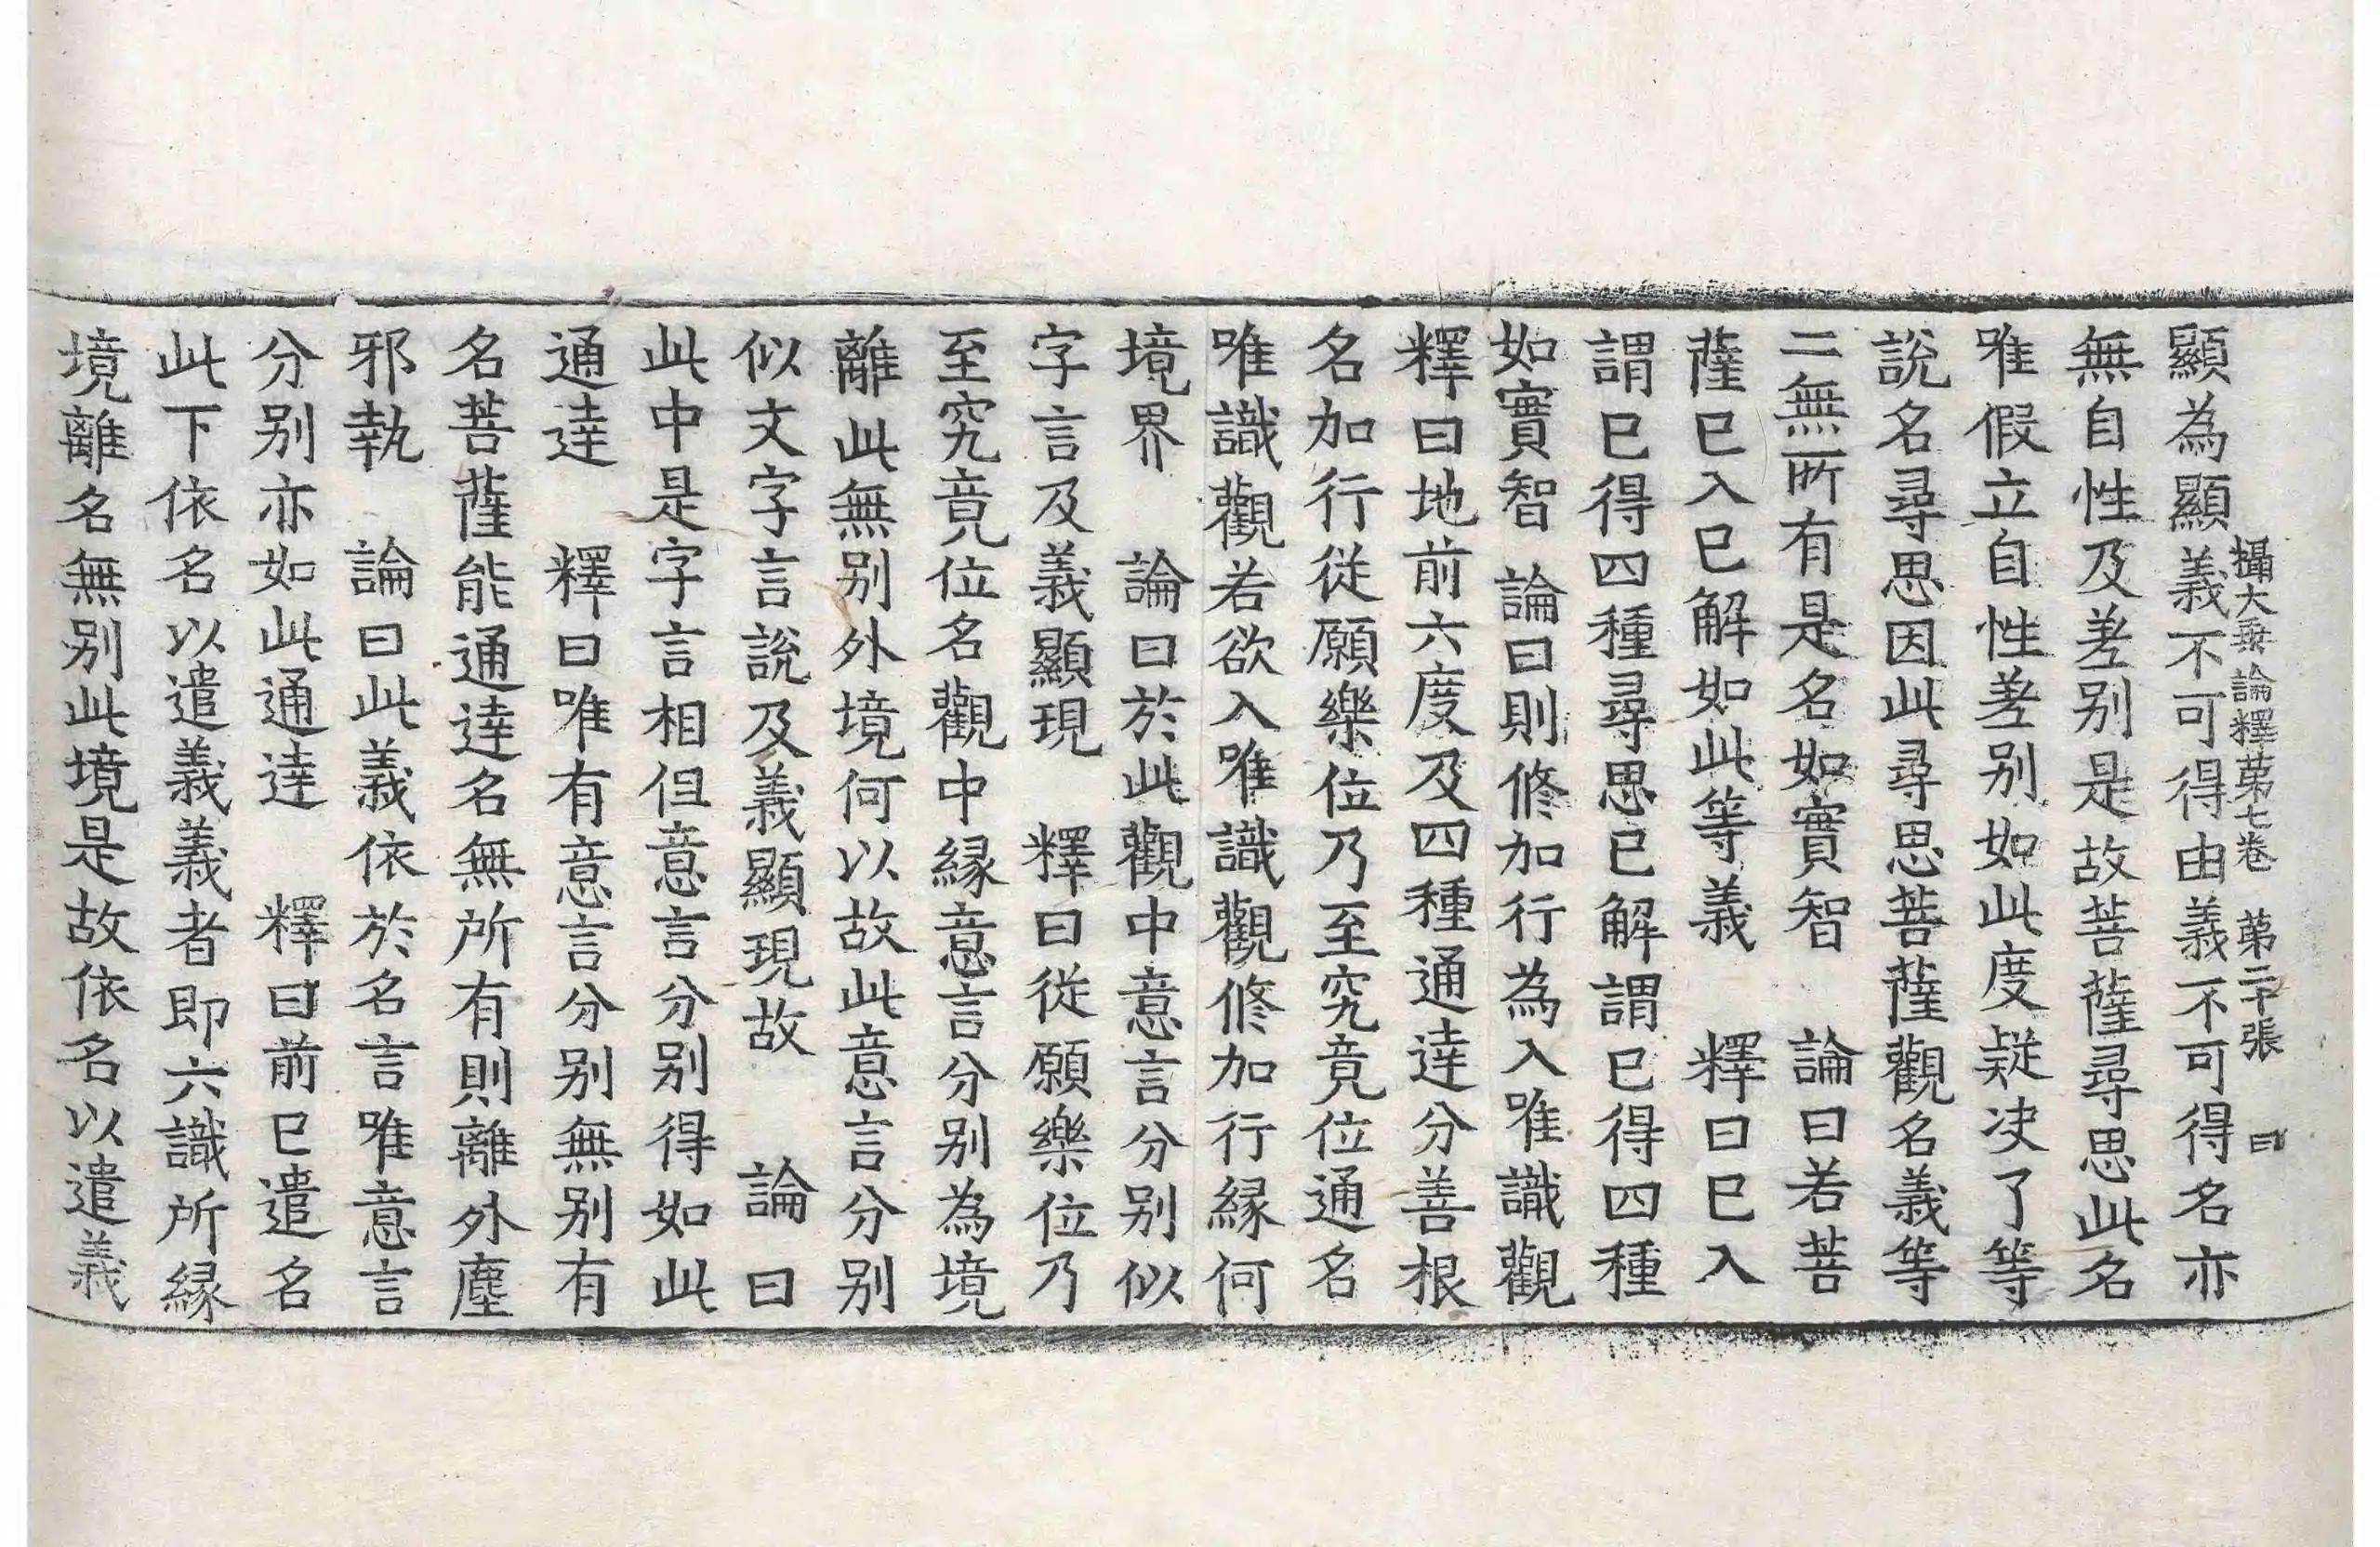 攝大乘論釋苐七卷 苐二十張 曰
顯為顯義不可得由義不可得名亦
無自性及差别是故菩薩尋思此名
唯假立自性差别如此度疑决了等
說名尋思因此尋思菩薩觀名義等
二無所有是名如實智 論曰若菩
薩已入已解如此等義 釋曰已入
謂已得四種尋思已解謂已得四種
如實智 論曰則修加行為入唯識觀
釋曰地前六度及四種通達分善根
名加行從願樂位乃至究竟位通名
唯識觀若欲入唯識觀修加行緣何
境界 論曰於此觀中意言分别似
字言及義顯現 釋曰從願樂位乃
至究竟位名觀中緣意言分别為境
離此無别外境何以故此意言分别
似文字言說及義顯現故 論曰
此中是字言相但意言分别得如此
通達 釋曰唯有意言分别無别有
名菩薩能通達名無所有則離外塵
邪執 論曰此義依於名言唯意言
分别亦如此通達 釋曰前已遣名
此下依名以遣義義者即六識所緣
境離名無别此境是故依名以遣義